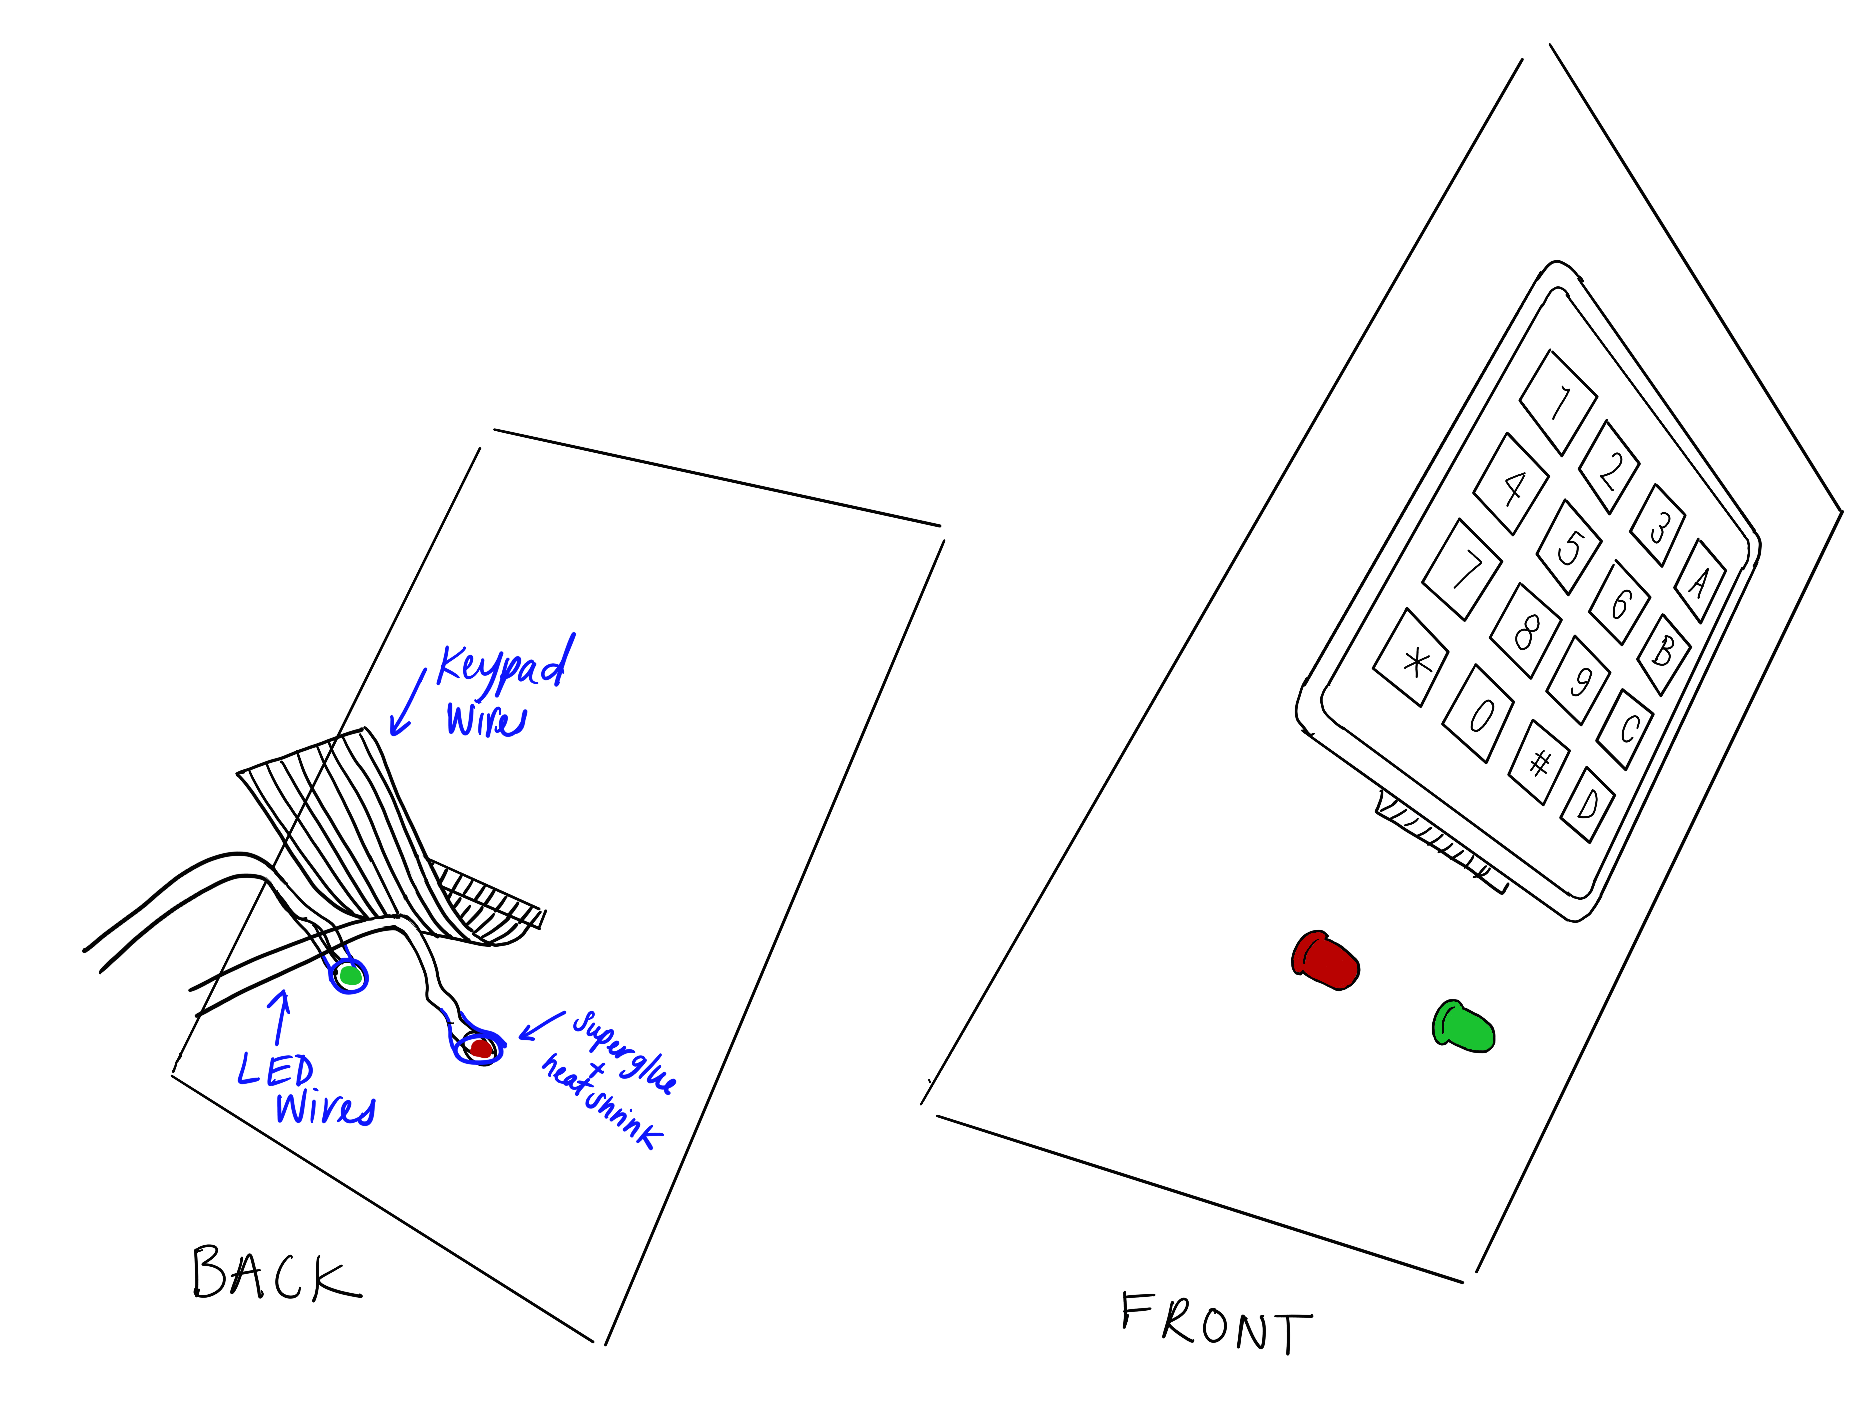 Keypad
Wires
LED
Wires
Superglue
+
heatshrink
BACK
1
2
3
A
4
5
6
B
7
8
9
C
*
0
#
D
FRONT